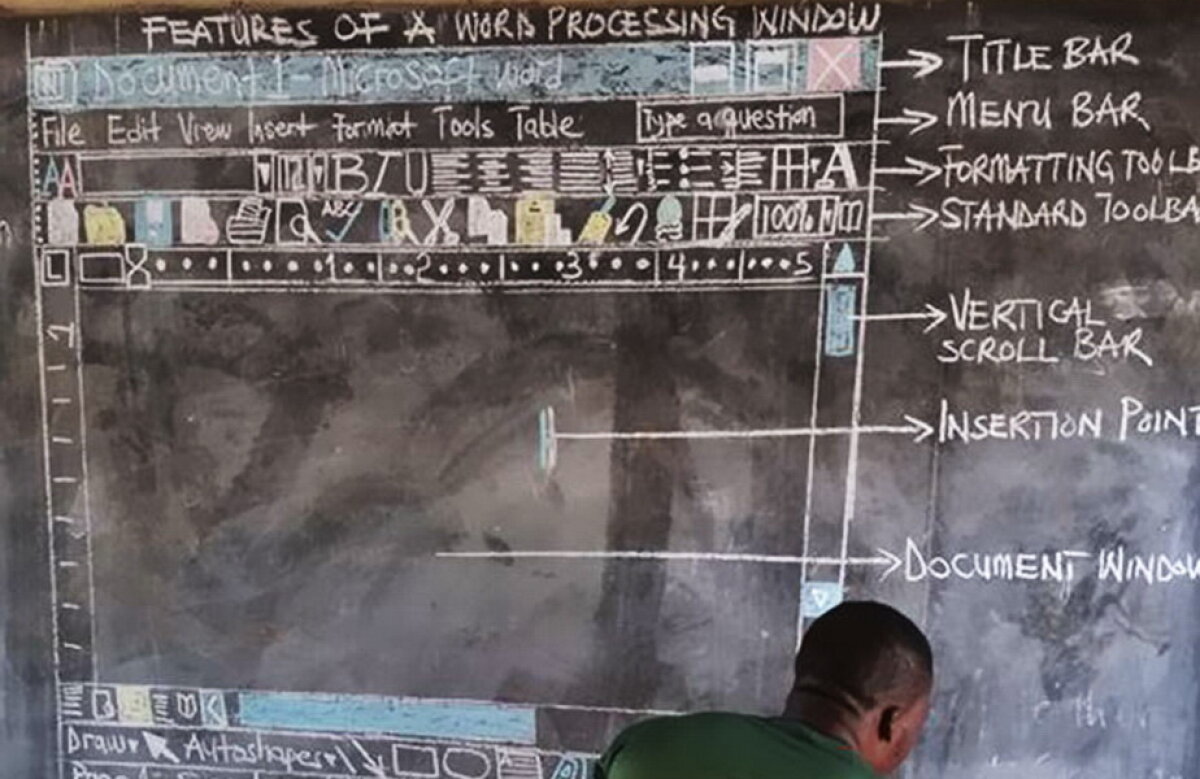 FEATURES OF A WORD PROCESSING WINDOW
Document 1 - Microsoft Word
TITLE BAR
File Edit View Insert Format Tools Table
Type a question
MENU BAR
AA
12
B I U
A
FORMATTING TOOLB
ABC
100%
STANDARD TOOLBA
L
1 2 3 4 5
1
VERTICAL
SCROLL BAR
INSERTION POINT
DOCUMENT WINDOW
Draw
Autoshapes
A